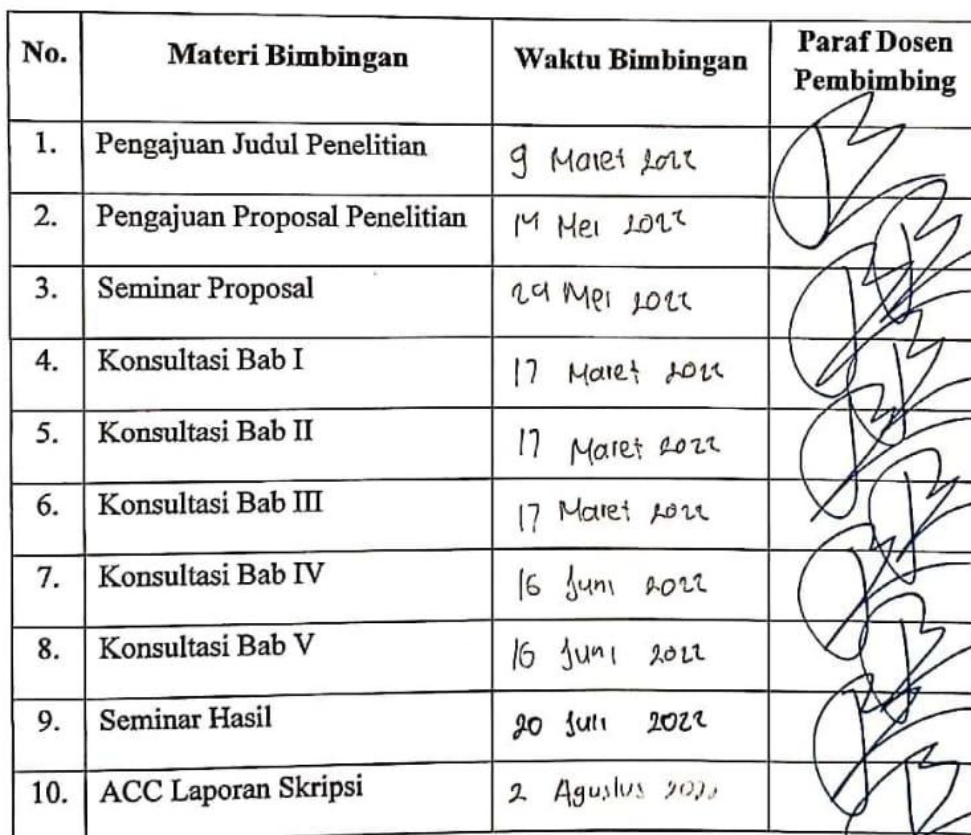 No. Materi Bimbingan Waktu Bimbingan Paraf Dosen Pembimbing
1. Pengajuan Judul Penelitian 9 Maret 2022
2. Pengajuan Proposal Penelitian Mei 2022
3. Seminar Proposal Mei 2022
4. Konsultasi Bab I 17 Maret 2022
5. Konsultasi Bab II 17 Maret 2022
6. Konsultasi Bab III 17 Maret 2022
7. Konsultasi Bab IV 16 Juni 2022
8. Konsultasi Bab V 16 Juni 2022
9. Seminar Hasil 20 Juli 2022
10. ACC Laporan Skripsi 2 Agustus